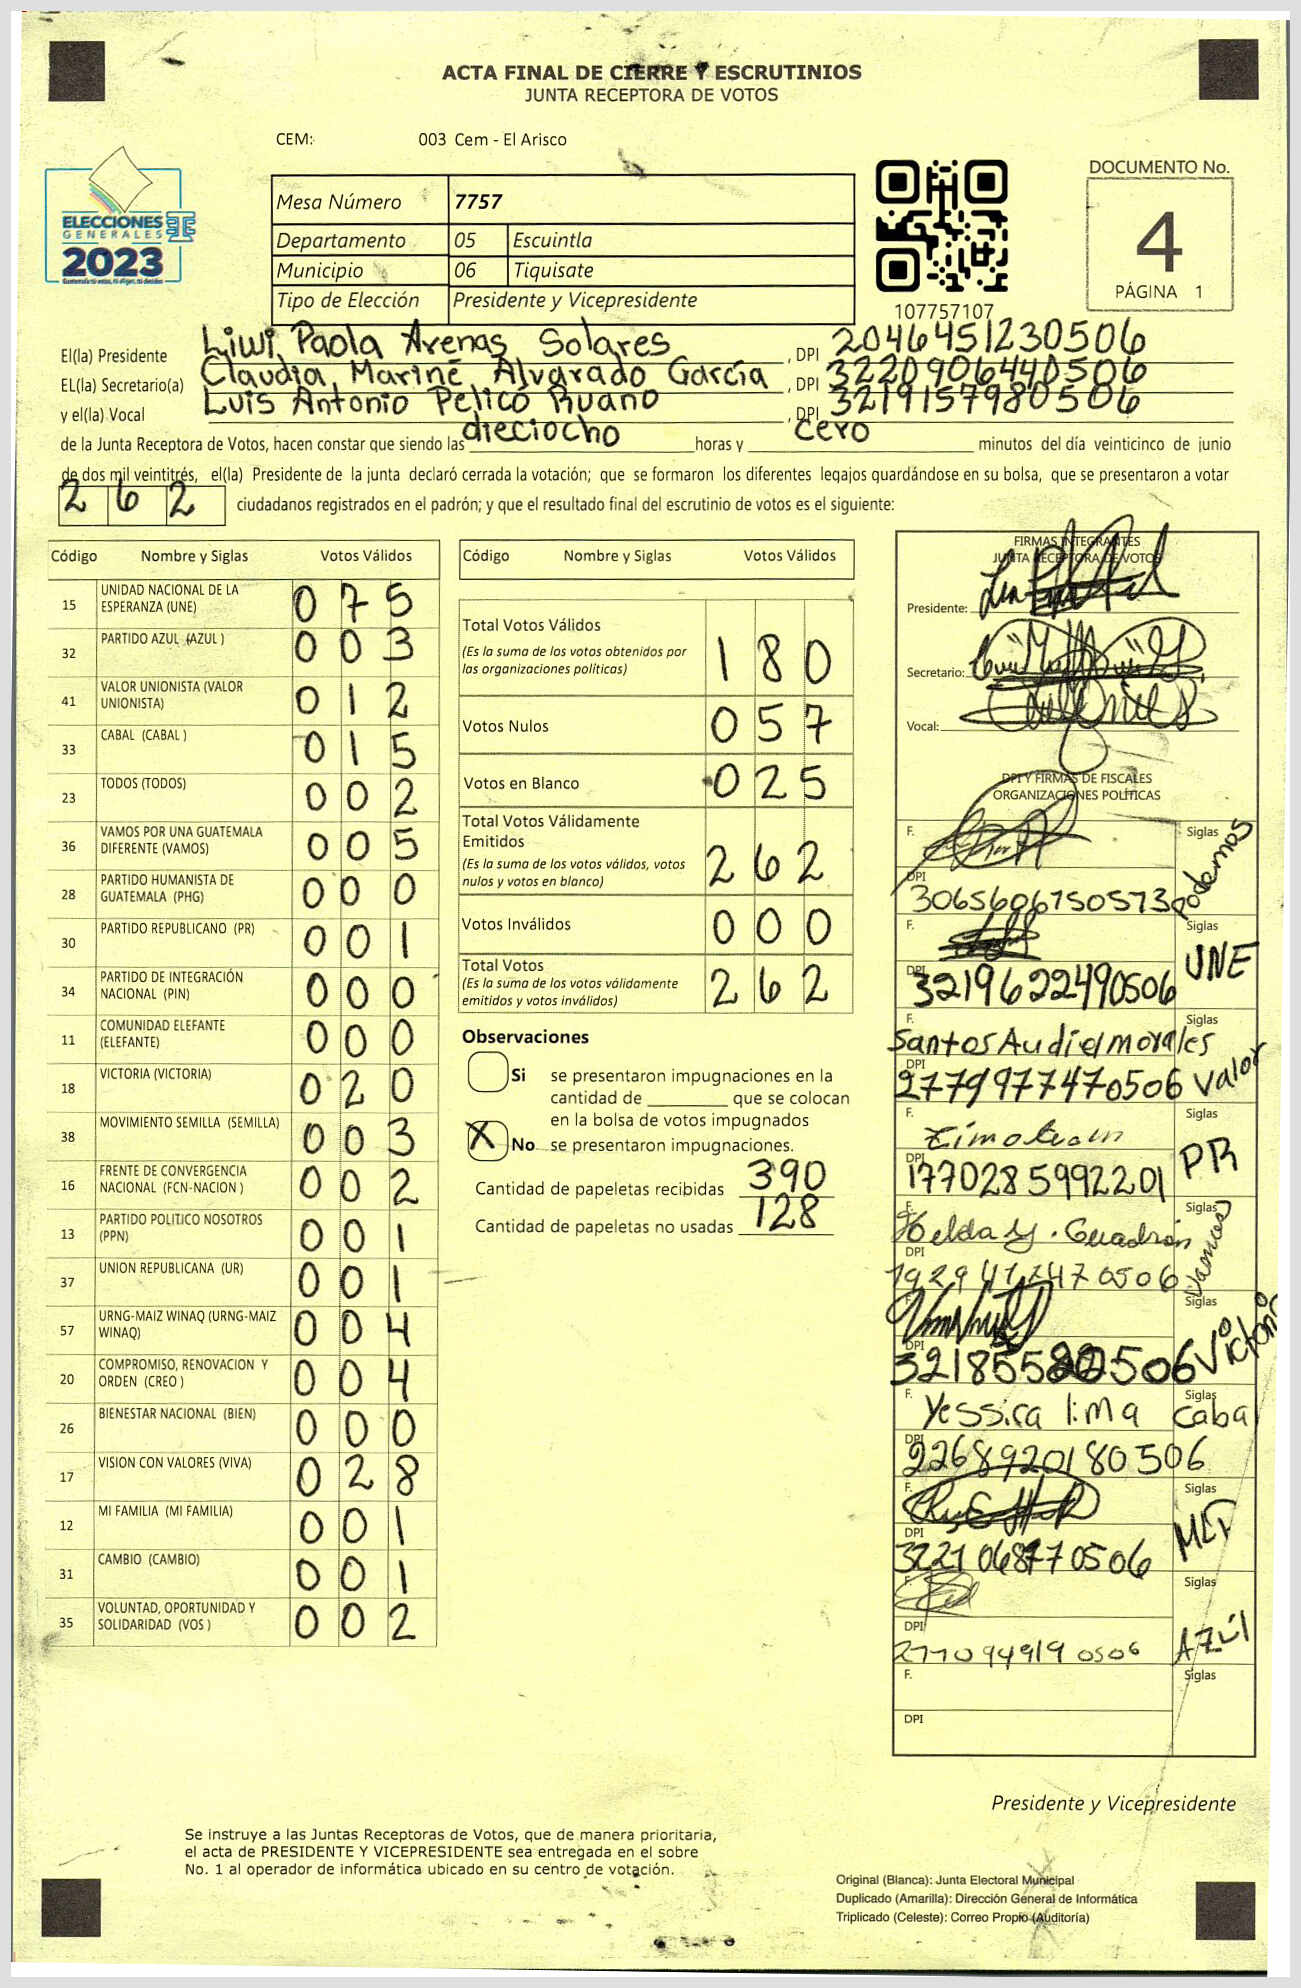 ACTA FINAL DE CIERRE Y ESCRUTINIOS
JUNTA RECEPTORA DE VOTOS
CEM: 003 Cem - El Arisco
ELECCIONES
GENERALES
2023
Mesa Número 7757
Departamento 05 Escuintla
Municipio 06 Tiquisate
Tipo de Elección Presidente y Vicepresidente
107757107
DOCUMENTO No.
4
PÁGINA 1
El(la) Presidente Liwi Paola Arenas Solares, DPI 2046451230506
EL(la) Secretario(a) Claudia Mariné Alvarado García, DPI 3220906440506
y el(la) Vocal Luis Antonio Pelicó Ruano, DPI 3219157980506
de la Junta Receptora de Votos, hacen constar que siendo las dieciocho horas y cero minutos del día veinticinco de junio
de dos mil veintitrés, el(la) Presidente de la junta declaró cerrada la votación; que se formaron los diferentes legajos guardándose en su bolsa, que se presentaron a votar
262 ciudadanos registrados en el padrón; y que el resultado final del escrutinio de votos es el siguiente:
Código Nombre y Siglas Votos Válidos
15 UNIDAD NACIONAL DE LA ESPERANZA (UNE) 075
32 PARTIDO AZUL (AZUL ) 003
41 VALOR UNIONISTA (VALOR UNIONISTA) 012
33 CABAL (CABAL ) 015
23 TODOS (TODOS) 002
36 VAMOS POR UNA GUATEMALA DIFERENTE (VAMOS) 005
28 PARTIDO HUMANISTA DE GUATEMALA (PHG) 000
30 PARTIDO REPUBLICANO (PR) 001
34 PARTIDO DE INTEGRACIÓN NACIONAL (PIN) 000
11 COMUNIDAD ELEFANTE (ELEFANTE) 000
18 VICTORIA (VICTORIA) 020
38 MOVIMIENTO SEMILLA (SEMILLA) 003
16 FRENTE DE CONVERGENCIA NACIONAL (FCN-NACION ) 002
13 PARTIDO POLITICO NOSOTROS (PPN) 001
37 UNION REPUBLICANA (UR) 001
57 URNG-MAIZ WINAQ (URNG-MAIZ WINAQ) 004
20 COMPROMISO, RENOVACION Y ORDEN (CREO ) 004
26 BIENESTAR NACIONAL (BIEN) 000
17 VISION CON VALORES (VIVA) 028
12 MI FAMILIA (MI FAMILIA) 001
31 CAMBIO (CAMBIO) 001
35 VOLUNTAD, OPORTUNIDAD Y SOLIDARIDAD (VOS ) 002
Código Nombre y Siglas Votos Válidos
Total Votos Válidos 180
(Es la suma de los votos obtenidos por
las organizaciones políticas)
Votos Nulos 057
Votos en Blanco 025
Total Votos Válidamente
Emitidos 262
(Es la suma de los votos válidos, votos
nulos y votos en blanco)
Votos Inválidos 000
Total Votos 262
(Es la suma de los votos válidamente
emitidos y votos inválidos)
Observaciones
Si se presentaron impugnaciones en la
cantidad de ________ que se colocan
en la bolsa de votos impugnados
X No se presentaron impugnaciones.
Cantidad de papeletas recibidas 390
Cantidad de papeletas no usadas 128
FIRMAS INTEGRANTES
JUNTA RECEPTORA DE VOTOS
Presidente:
Secretario:
Vocal:
DPI Y FIRMAS DE FISCALES
ORGANIZACIONES POLÍTICAS
F. Siglas Podemos
DPI 3065606750573
F. Siglas UNE
DPI 3219622490506
F. Santos Audiel morales Siglas Valor
DPI 2779977470506
F. Siglas PR
DPI 1770285992201
F. Siglas Vamos
DPI
F. Siglas Victoria
DPI
F. Yessica lima Siglas Caba
DPI 2268920180506
F. Siglas
DPI
F. Siglas AZÚl
DPI
F. Siglas
DPI
Presidente y Vicepresidente
Se instruye a las Juntas Receptoras de Votos, que de manera prioritaria,
el acta de PRESIDENTE Y VICEPRESIDENTE sea entregada en el sobre
No. 1 al operador de informática ubicado en su centro de votación.
Original (Blanca): Junta Electoral Municipal
Duplicado (Amarilla): Dirección General de Informática
Triplicado (Celeste): Correo Propio (Auditoría)